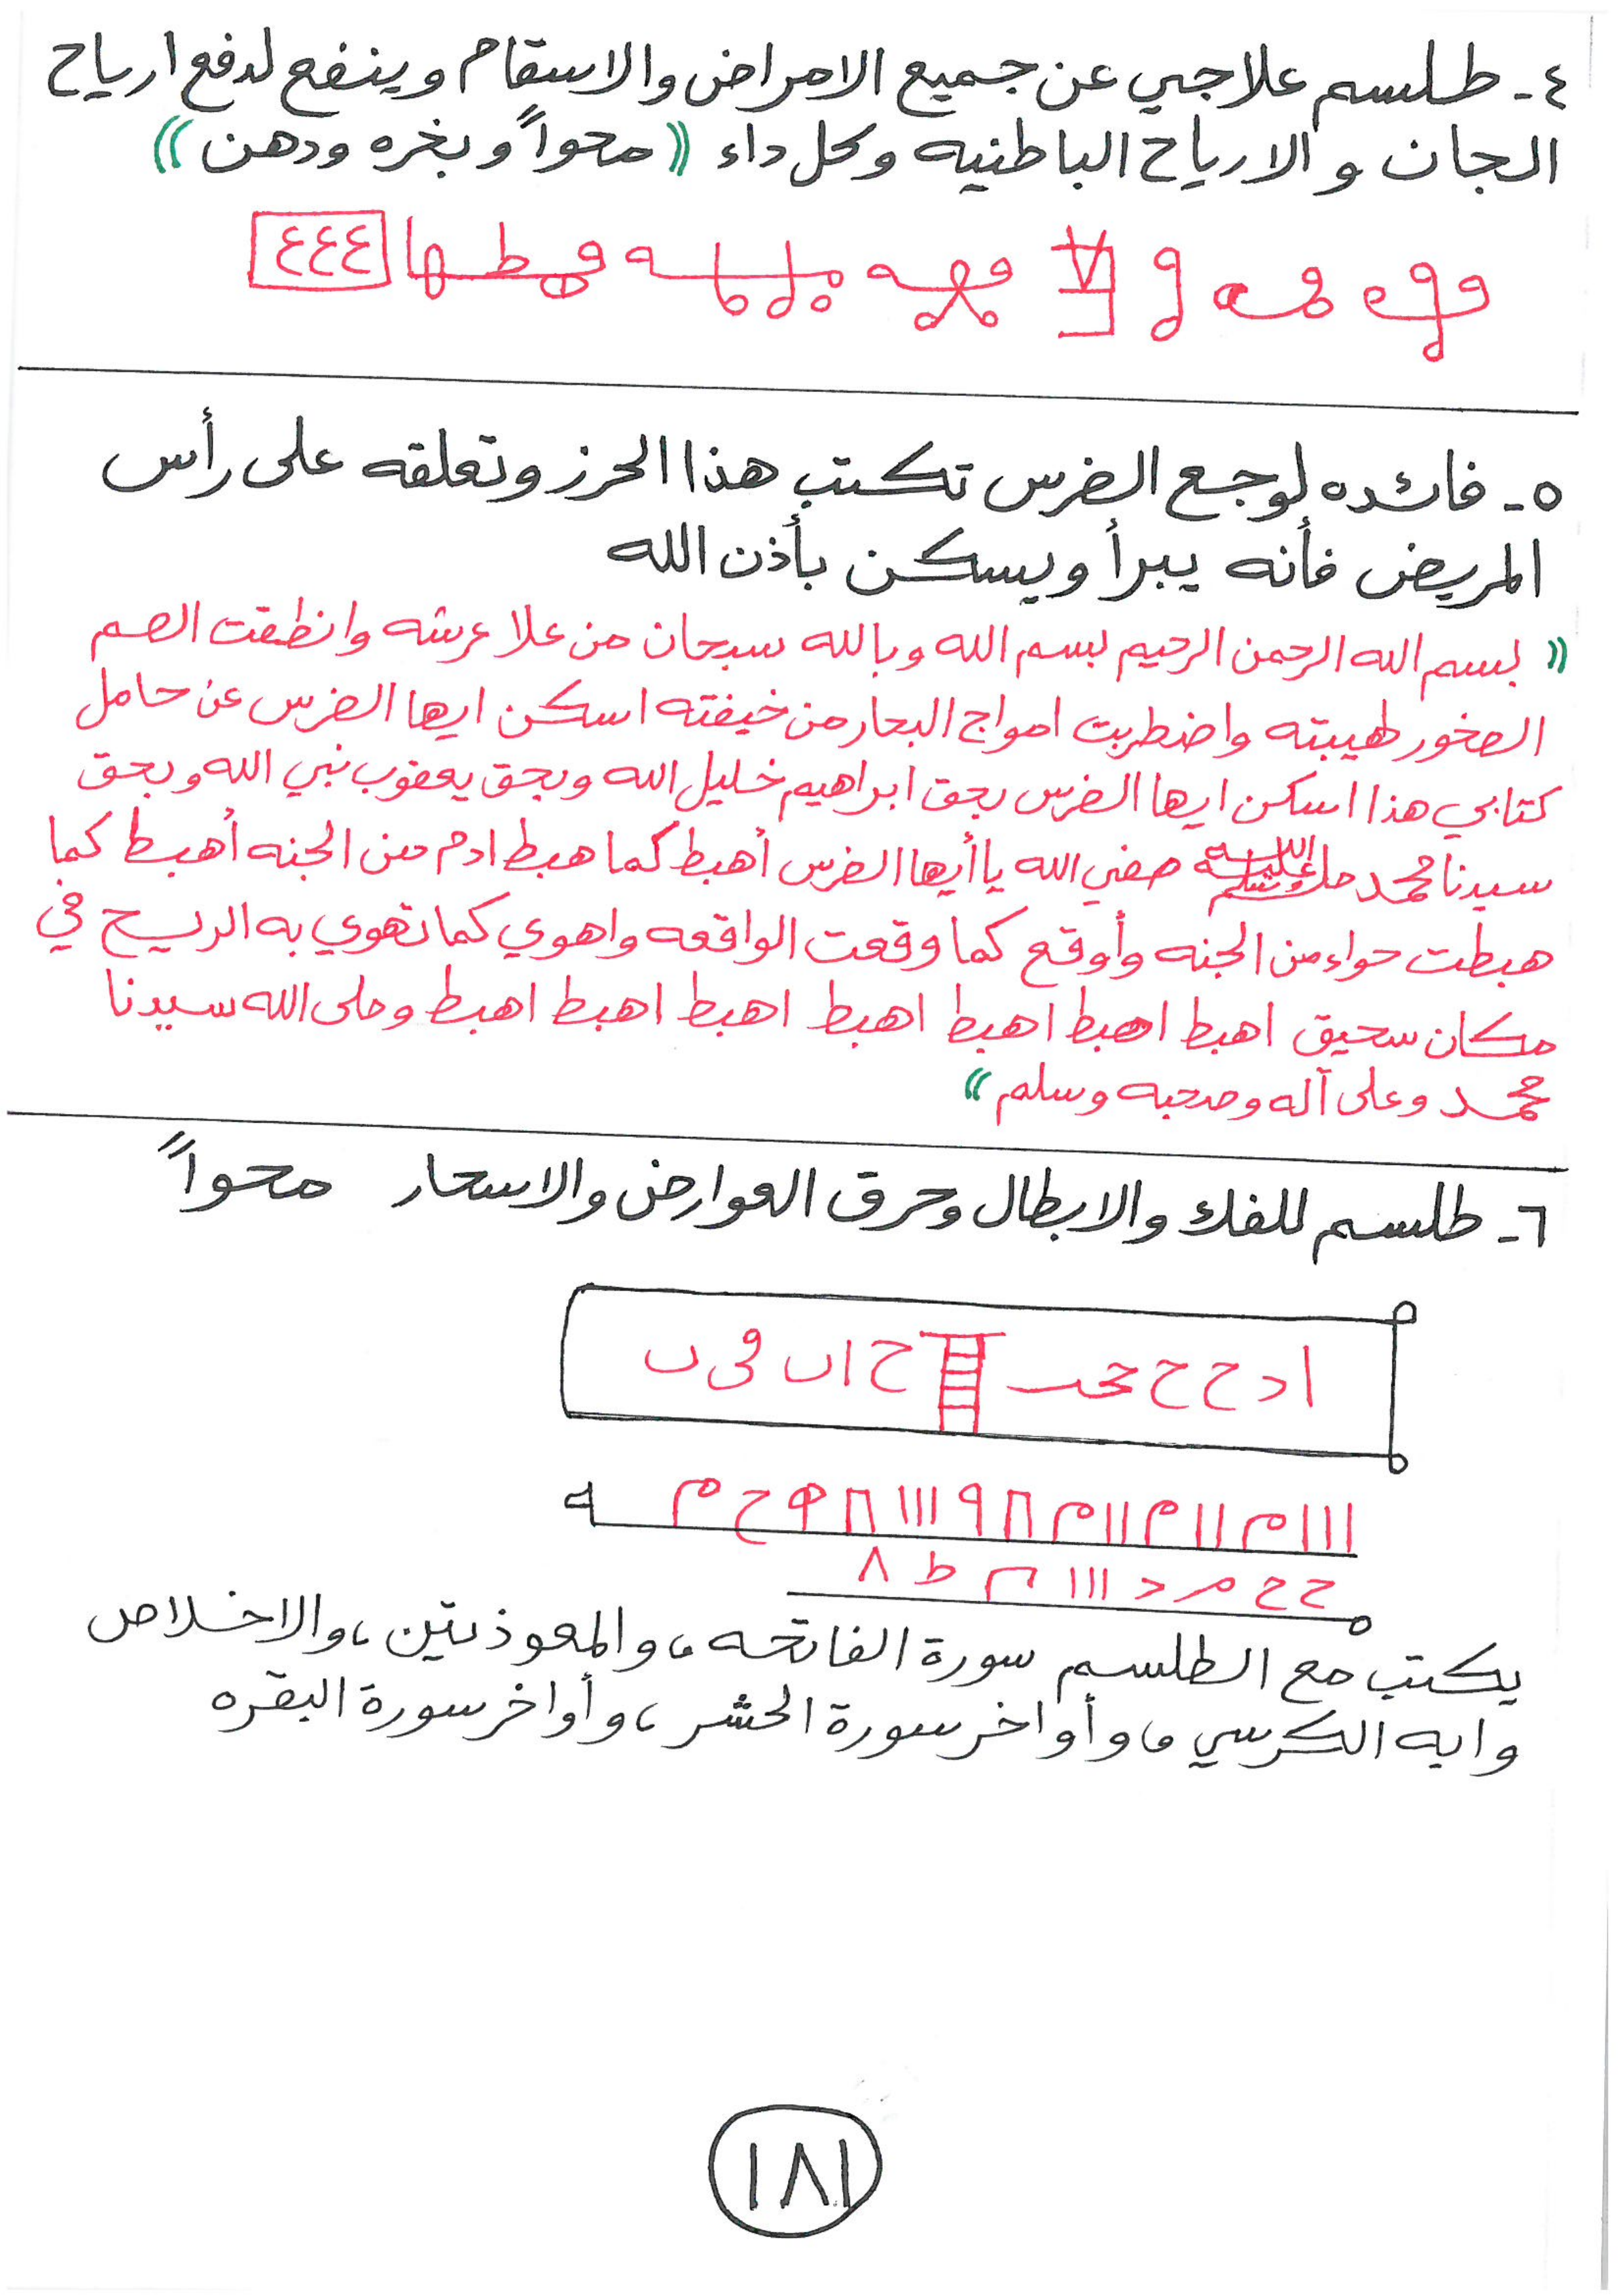 ٤- طلسم علاجي عن جميع الامراض والاسقام وينفع لدفع ارياح
الجان و الارياح الباطنيه وكل داء (( محواً و بخره ودهن ))
٤٤٤
٥- فائده لوجع الضرس تكتب هذا الحرز وتعلقه على رأس
المريض فأنه يبرأ ويسكن بأذن الله
(( بسم الله الرحمن الرحيم بسم الله وبالله سبحان من علا عرشه وانطقت الصم
الصخور لهيبته واضطربت امواج البحار من خيفته اسكن ايها الضرس عن حامل
كتابي هذا اسكن ايها الضرس بحق ابراهيم خليل الله وبحق يعقوب نبي الله وبحق
سيدنا محمد صفي الله يا أيها الضرس أهبط كما هبط ادم من الجنه أهبط كما
هبطت حواء من الجنه وأوقع كما وقعت الواقعه واهوي كما تهوي به الريح في
مكان سحيق اهبط اهبط اهبط اهبط اهبط اهبط اهبط وصلى الله سيدنا
محمد وعلى آله وصحبه وسلم ))
٦- طلسم للفك والابطال وحرق العوارض والاسحار محواً
يكتب مع الطلسم سورة الفاتحه، والمعوذتين، والاخلاص
وايه الكرسي، وأواخر سورة الحشر، وأواخر سورة البقره
١٨١